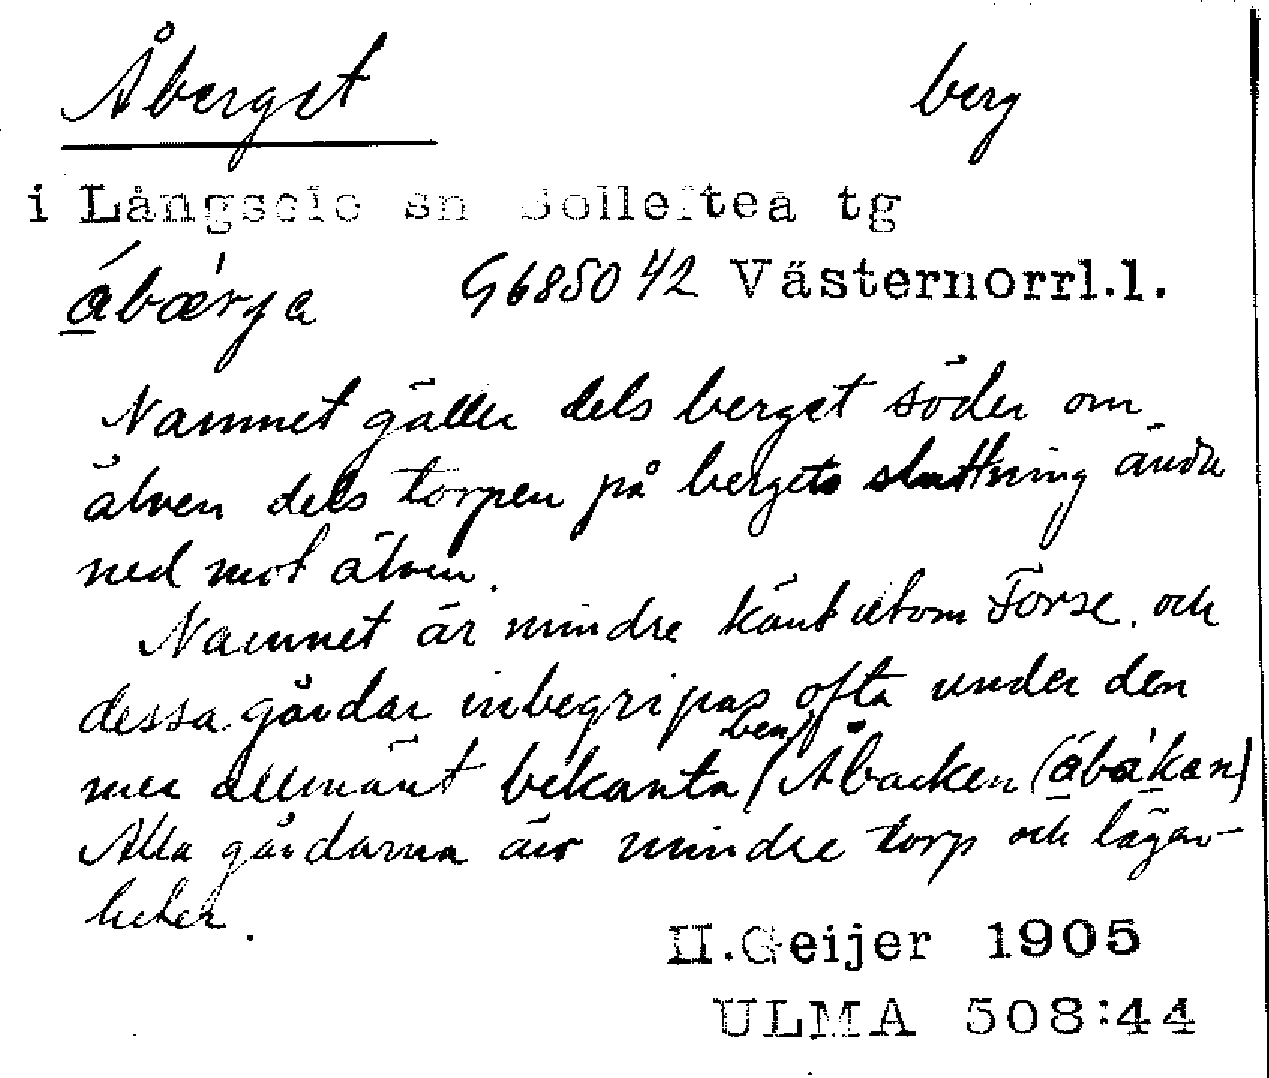 Åberget berg
i Långsele sn Sollefteå tg
ábærja G6850 42 Västernorrl.l.
Namnet gäller dels berget söder om
älven dels torpen på bergets sluttning ända
ned mot älven.
Namnet är mindre känt utom Forse, och
dessa gårdar inbegripas ofta under den
mer allmänt bekanta ben. Åbacken (ábákan)
Alla gårdarna äro mindre torp och lägen-
heter.
H.Geijer 1905
ULMA 508:44